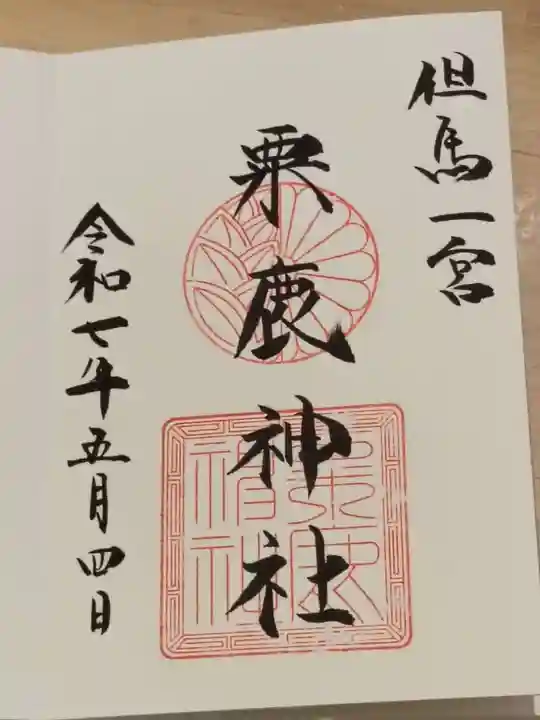 但馬一宮
粟鹿神社
令和七年五月四日